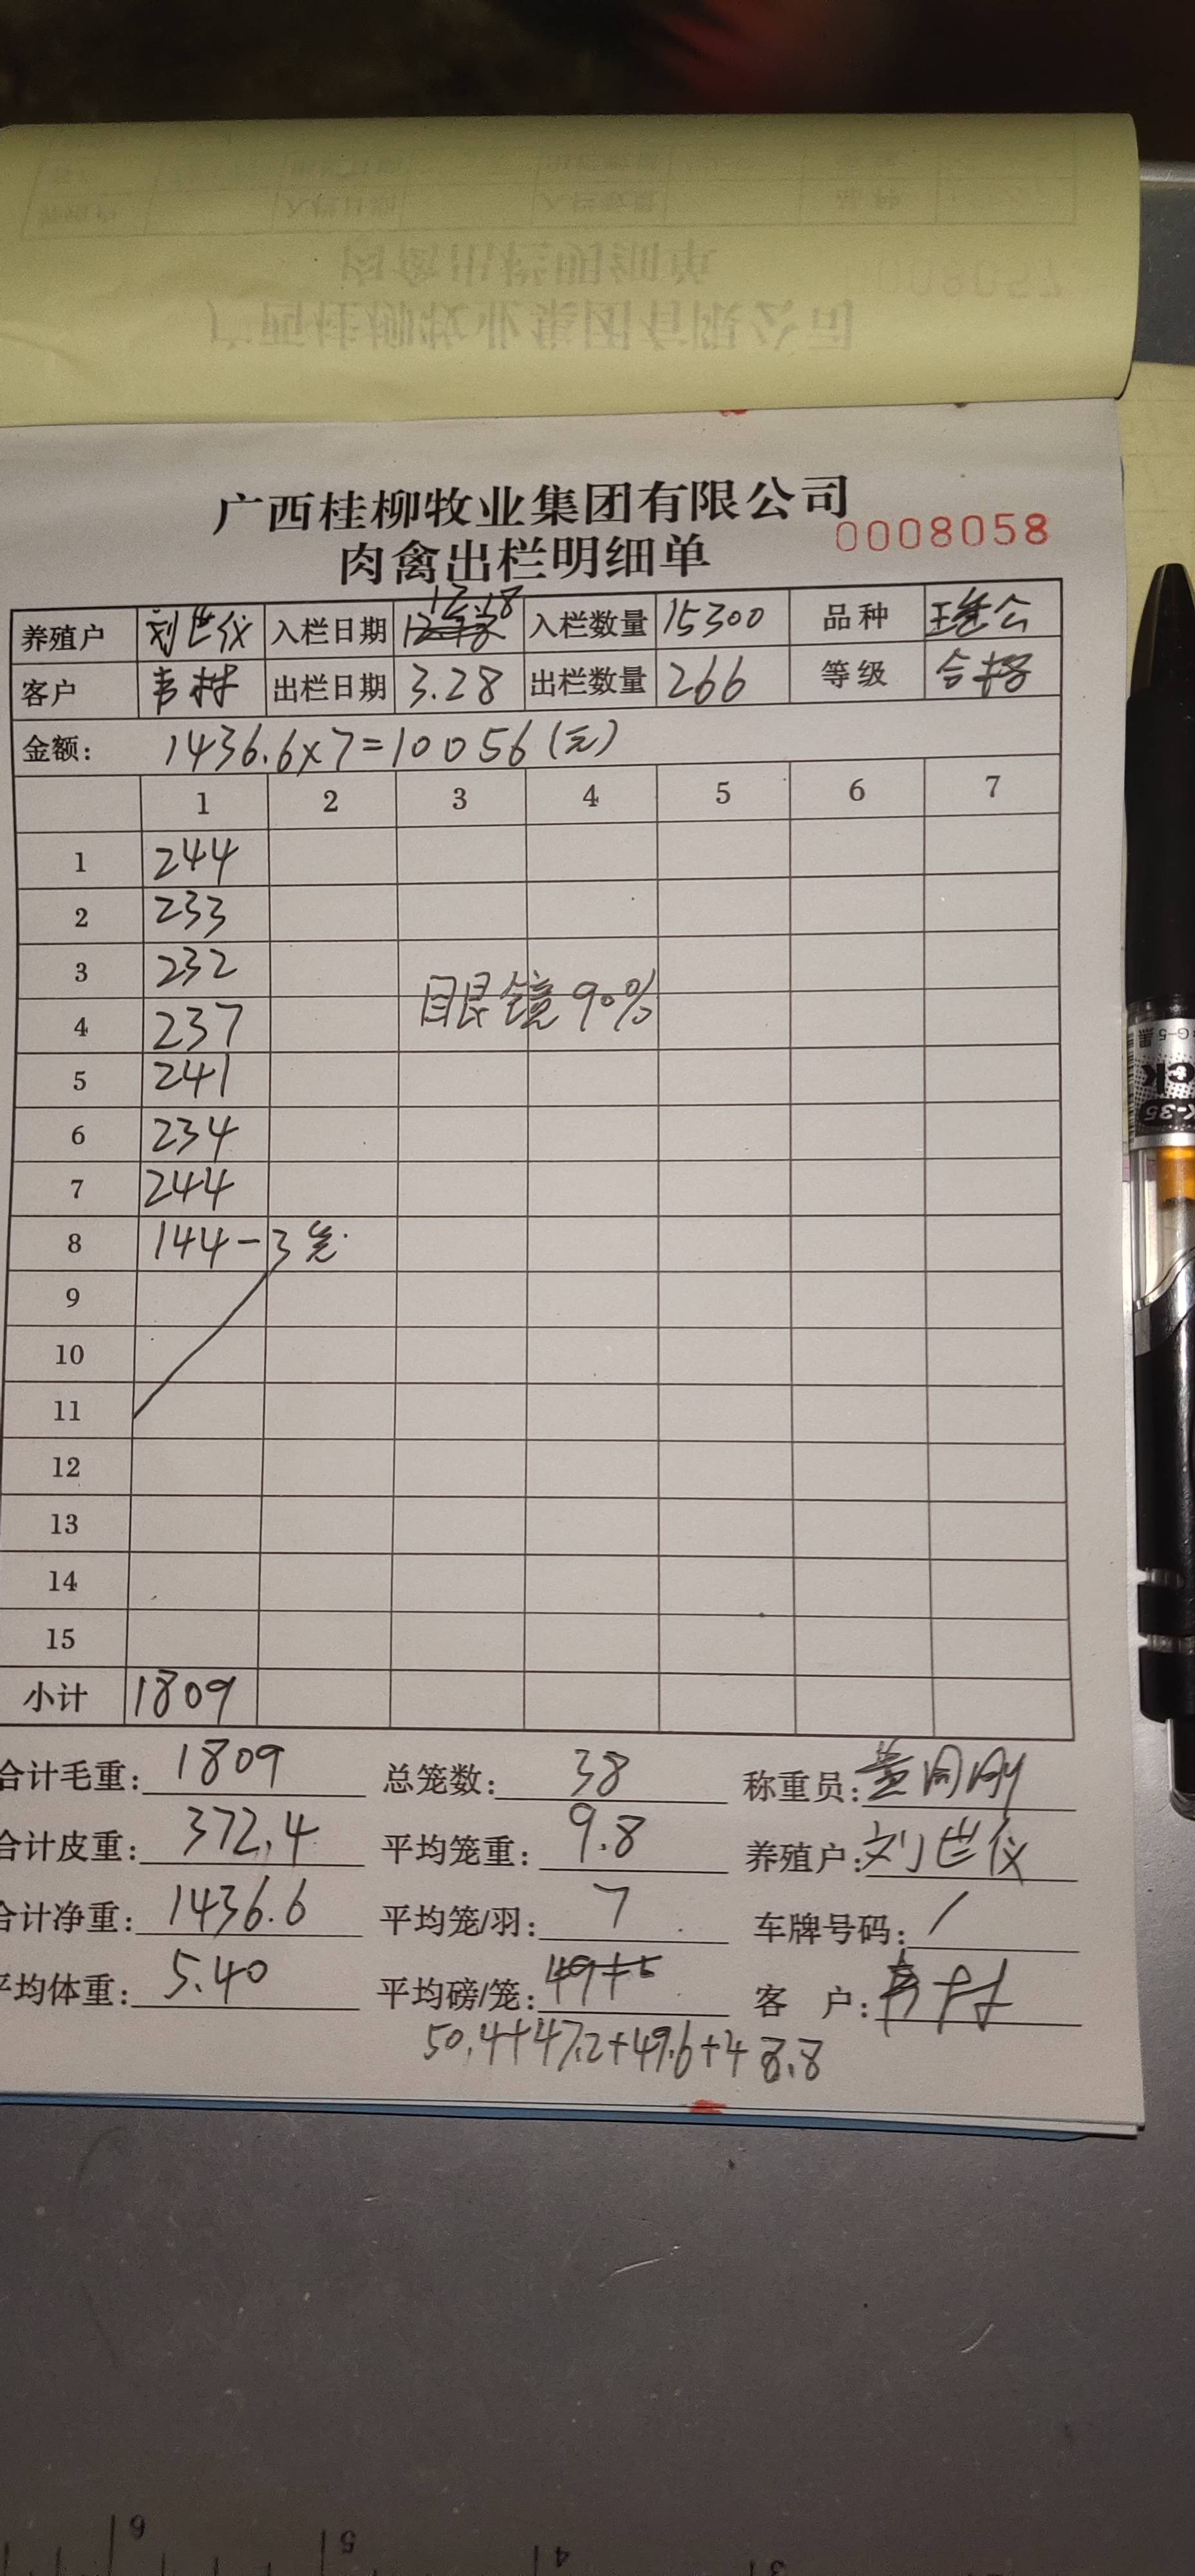 广西桂柳牧业集团有限公司
肉禽出栏明细单 0008058
养殖户 刘世仪 入栏日期 12.18 入栏数量 15300 品种
客户 韦村 出栏日期 3.28 出栏数量 266 等级 合格
金额: 1436.6×7=10056(元)
1 2 3 4 5 6 7
1 244
2 233
3 232
眼镜90%
4 237
5 241
6 234
7 244
8 144-3笼
9
10
11
12
13
14
15
小计 1809
合计毛重: 1809 总笼数: 38 称重员:
合计皮重: 372.4 平均笼重: 9.8 养殖户: 刘世仪
合计净重: 1436.6 平均笼/羽: 7 车牌号码: /
平均体重: 5.40 平均磅/笼: 客 户: 韦村
50.4+47.2+49.6+48.8